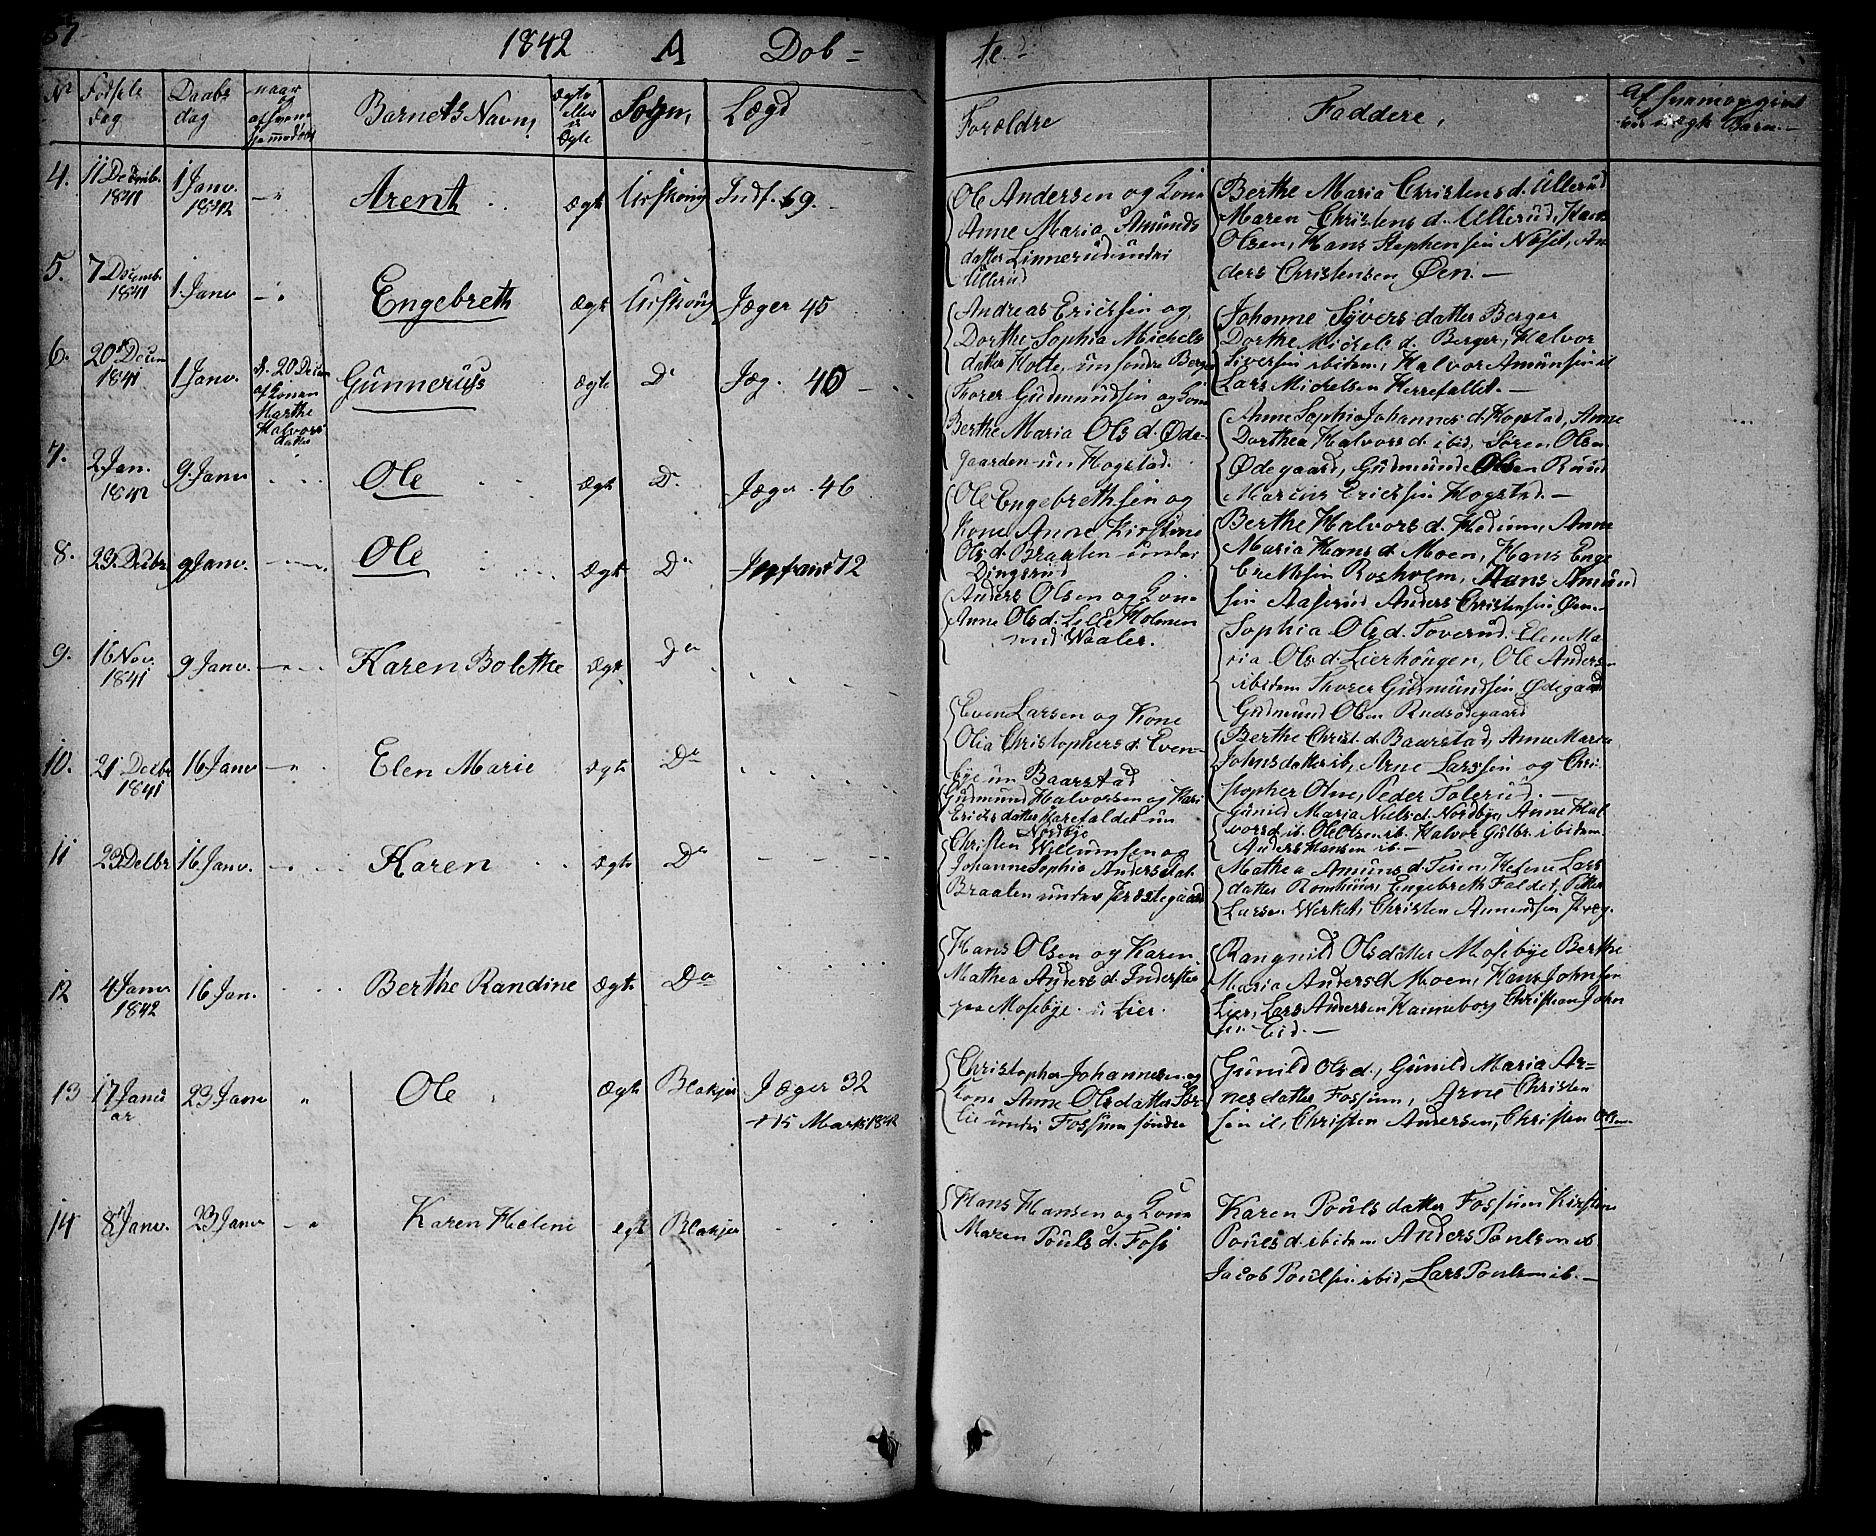 57
1842 A Dob= te.
No
Fødsels dag
Daabs dag
naar og af hvem hjemmedøbt
Barnets Navn,
Ægte eller u Ægte
Sogn,
Lægd
Forældre
Faddere,
4. 11 Decemb. 1841 1 Janv. 1842 -"- Arent Ægte Urskoug Indf. 69.
Ole Andersen og Kone
Anne Maria Amunds
datter Linnerud under
Ullerud
Berthe Maria Christens d. Ullerud
Maren Christens d. Ullerud, Hans
Olsen, Hans Stephensen Næset, An
ders Christensen Øen. —
5. 7 Decemb. 1841 1 Janv -"- Engebreth Ægte Urskoug Jæger 45
Andreas Ericksen og
Dorthe Sophia Michels
datter Holte, un søndre Berger
Johanne Syvers datter Berger
Dorthe Michels d. Berger, Halvor
Siversen ibidem, Halvor Amunsen il
Lars Michelsen Herrefallet. —
6. 20 Decem 1841 1 Janv. d. 20 Decem af konen Marthe Halvors datter Gunneruss Ægte Do Jæg. 40 —
Thorer Gudmundsen og Kone
Berthe Maria Ols d. Øde-
gaarden un Hogstad.
Anne Sophia Johannes d. Hogstad, Anne
Dorthea Halvors d. ibid, Søren Olsen
Ødegaard, Gudmund Olsen Ruud
Marcus Ericksen Hogstad. —
7. 2 Jan. 1842 9. Janv Ole Ægte Do Jæger 46
Ole Engebrethsen og
Kone Anne Kirstine
Ols d. Braaten under
Dingsrud
Berthe Halvors d. Hedum, Anne
Maria Hans d. Moen, Hans Enge
brethsen Rosholm, Hans Amund
sen Aaserud Anders Christensen Øen.
8. 23. Decbr 9 Janv. Ole Ægte Do Infant 72
Anders Olsen og Kone
Anne Ols d. Lille Holmen
ned Waaler.
Sophia Ols d. Toverud. Elen Ma
ria Ols d. Lierhougen, Ole Anders
ibidem Thorer Gudmundsen Ødegaard
Gudmund Olsen Rudsødegaard
9. 16 Nov. 1841 9 Janv. Karen Bolethe Ægte Do
Even Larsen og Kone
Olia Christophers d. Even-
bye un Baarstad
Berthe Christ. d. Baarstad, Anne Maria
Johns datter ib, Arne Larssen og Chri
stopher Olne, Peder Tølerud. —
10. 21 Decbr 1841 16 Janv -"- Elen Marie Ægte Do
Gudmund Halvorsen og Kari
Ericks datter Harefaldet un
Nordbye
Gunild Maria Niels d. Nordbye, Anne Hal
vors d. ib. Ole Olsen ib. Halvor Gulbr. ibidem
Anders Hansen ib. —
11 23 Decbr 16. Janv. Karen Ægte Do
Christen Willumsen og
Johanne Sophia Andersdat.
Braaten under Prestegaard
Mathea Amuns d. Teien, Helene Lars
datter Romhuus, Engebreth Faldet, Petter
Larsen Werket, Christen Amundsen Præg.
12 4 Janv 1842 16 Jan. Berthe Randine Ægte Do
Hans Olsen og Karen
Mathea Anders d. Inderstie
paa Mosebye i Lier.
Rangnild Olsdatter Mosebye Berthe
Maria Anders d. Moen, Hans Johnsen
Lier, Lars Andersen Kanneborg Christian John
sen Eid. —
13 17 Janu ar 23 Janv " Ole Ægte Blakjer Jæger 32
+ 15 Marts 1842
Christopher Johannesen og
Kone Anne Olsdatter Sør-
lie under Fossum søndre
Gunild Ols d., Gunild Maria Ar=
nes datter Fossum, Arne Christen
sen il, Christen Andersen, Christen Olsen
14 8 Janv. 23 Janv -"- Karen Helene Ægt Blakjer
Hans Hansen og Kone
Maren Pouls d. Foss
Karen Pouls datter Fossum Kirstine
Pouls d. ibidem Anders Poulsen ib
Jacob Poulsen ibid, Lars Poulsen ib. —